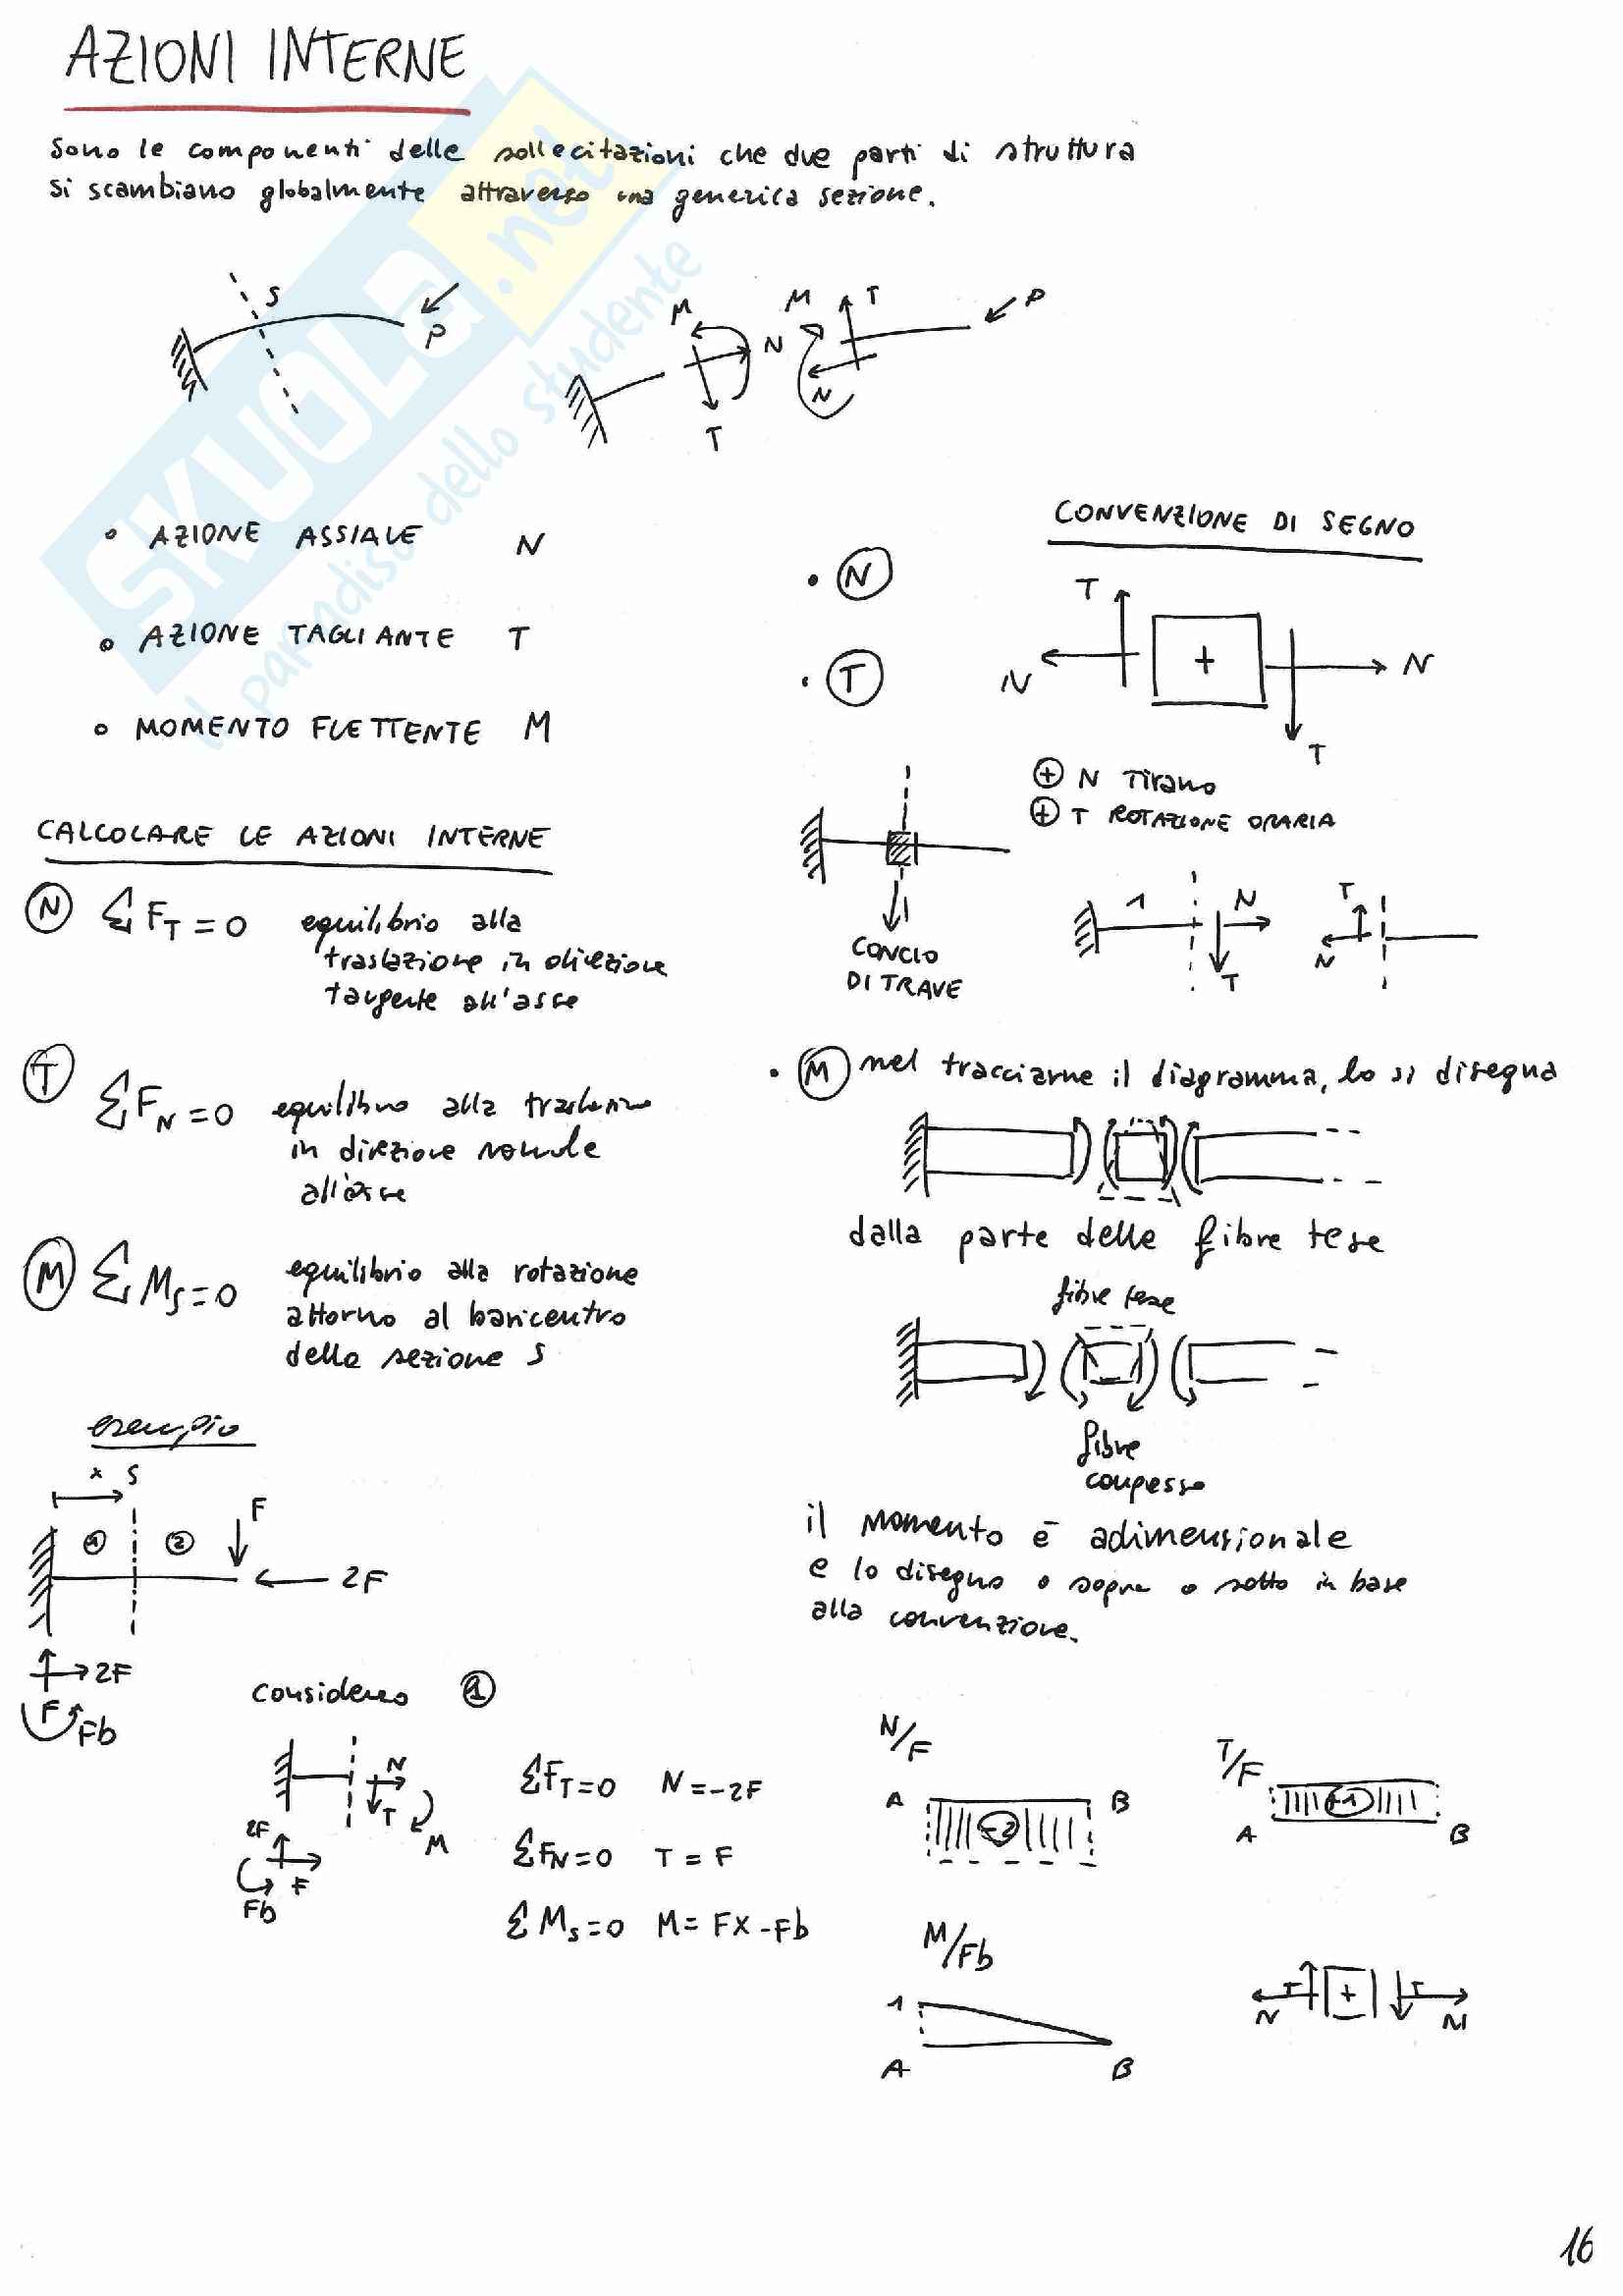 AZIONI INTERNE
Sono le componenti delle sollecitazioni che due parti di struttura
si scambiano globalmente attraverso una generica sezione.
S
P
M
N
T
M
T
N
P
• AZIONE ASSIALE N
• AZIONE TAGLIANTE T
• MOMENTO FLETTENTE M
CALCOLARE LE AZIONI INTERNE
N ΣF_T = 0 equilibrio alla
traslazione in direzione
tangente all'asse
T ΣF_N = 0 equilibrio alla traslazione
in direzione normale
all'asse
M ΣM_S = 0 equilibrio alla rotazione
attorno al baricentro
della sezione S
esempio
x S
F
1 2
2F
2F
F
Fb
considero 1
N
T
M
2F
F
Fb
ΣF_T = 0 N = -2F
ΣF_N = 0 T = F
ΣM_S = 0 M = Fx - Fb
CONVENZIONE DI SEGNO
• N
• T
T
N + N
T
+ N Tirano
+ T ROTAZIONE ORARIA
CONCIO
DI TRAVE
1 N
T
T
N
• M nel tracciarne il diagramma, lo si disegna
dalla parte delle fibre tese
fibre tese
fibre
compesse
il momento è adimensionale
e lo disegno o sopra o sotto in base
alla convenzione.
N/F
A B
-2
T/F
+1
A B
M/Fb
1
A B
T + T
N N
16
SKUOLA.net
il paradiso dello studente